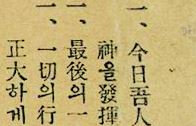 一、今日吾人
神을發揮
一、最後의一
一、一切의行
正大하게